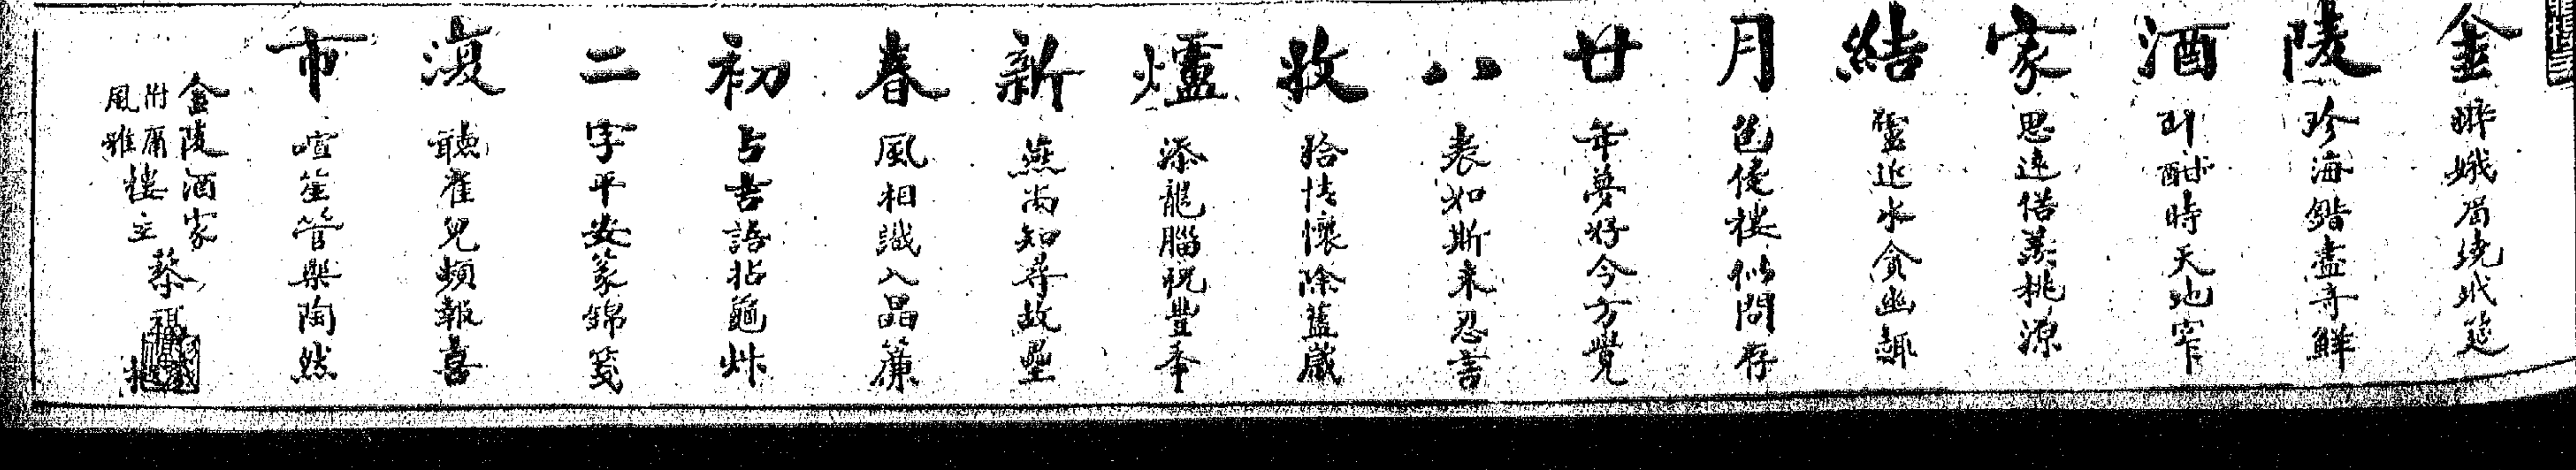 金翀娥眉繞玳筵
陵珍海錯盡奇鮮
酒到酣時天地窄
家思遠偕羨桃源
結廬近水貪幽趣
月色侵樓似問存
廿年夢好今方覺
八表如斯未忍言
收拾情懷除舊歲
爐添龍腦祝豐年
新燕尚知尋故壘
春風相識入晶簾
初占吉語拈龜艸
二字平安篆錦箋
復聽雀兒頻報喜
市喧笙管樂陶然
金陵酒家
附庸風雅樓主
蔡福